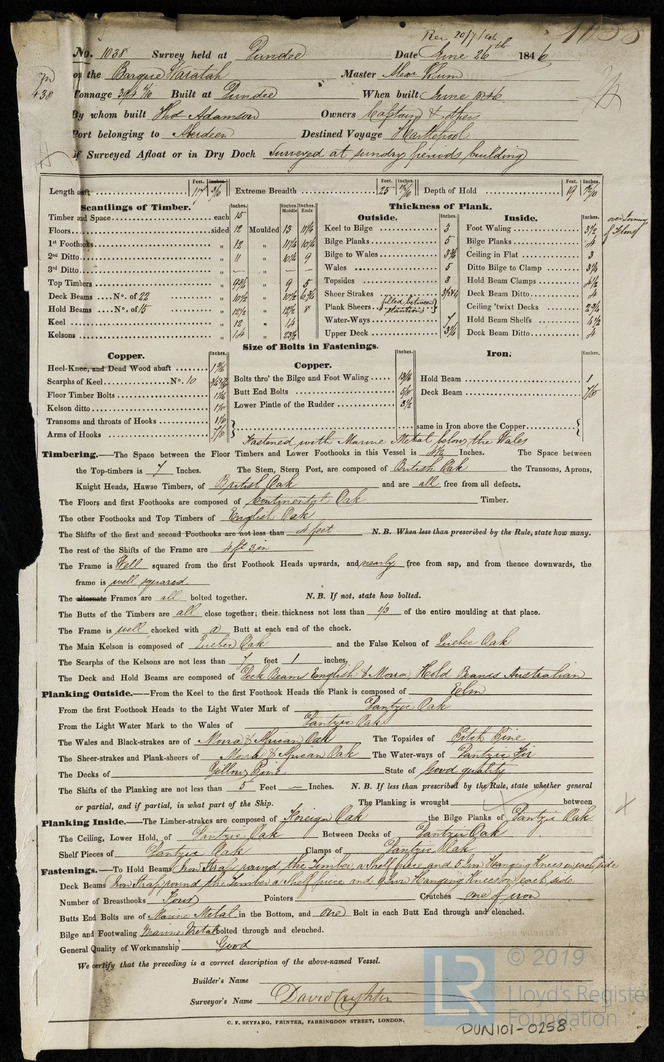 Rec 20/7/46
No. 1038 Survey held at Dundee Date June 26th 1846
on the Barque Taratah Master Alexr
438
Tonnage Built at Dundee When built June 1846
By whom built Thos Adamson Owners Captain & others
Port belonging to Aberdeen Destined Voyage Hartlepool
if Surveyed Afloat or in Dry Dock Surveyed at sundry periods building
Length aft Feet. Inches. Extreme Breadth Feet. Inches. 25 Depth of Hold Feet. Inches. 19
Scantlings of Timber. Inches. Inches Middle Inches Ends
Thickness of Plank.
Outside. Inches. Inside. Inches.
Timber and Space each 15
Floors sided 12 Moulded 13
1st Foothooks 12 "
2nd Ditto 11 " 9
3rd Ditto — " — —
Top Timbers " 9 5
Deck Beams No. of 22 "
Hold Beams No. of 15 " 8
Keel 12 " 14
Kelsons 14 "
Keel to Bilge 3
Bilge Planks 5
Bilge to Wales
Wales 5
Topsides 3
Sheer Strakes
Plank Sheers filled between
Water-Ways 7
Upper Deck
Foot Waling
Bilge Planks 4
Ceiling in Flat 3
Ditto Bilge to Clamp
Hold Beam Clamps 4½
Deck Beam Ditto 4
Ceiling 'twixt Decks
Hold Beam Shelfs 4½
Deck Beam Ditto 4
Size of Bolts in Fastenings.
Copper. Inches. Copper. Inches. Iron. Inches.
Heel-Knee, and Dead Wood abaft
Scarphs of Keel No. 10
Floor Timber Bolts
Kelson ditto
Transoms and throats of Hooks
Arms of Hooks 7/8
Bolts thro' the Bilge and Foot Waling
Butt End Bolts
Lower Pintle of the Rudder
Hold Beam 1
Deck Beam 7/8
same in Iron above the Copper
Fastened with Marine Metal below the Wales
Timbering.—The Space between the Floor Timbers and Lower Foothooks in this Vessel is Inches. The Space between
the Top-timbers is 7 Inches. The Stem, Stern Post, are composed of British Oak the Transoms, Aprons,
Knight Heads, Hawse Timbers, of British Oak and are all free from all defects.
The Floors and first Foothooks are composed of Continental Oak Timber.
The other Foothooks and Top Timbers of English Oak
The Shifts of the first and second Foothooks are not less than feet N.B. When less than prescribed by the Rule, state how many.
The rest of the Shifts of the Frame are 4 ft 3 in
The Frame is Well squared from the first Foothook Heads upwards, and nearly free from sap, and from thence downwards, the
frame is well squared
The alternate Frames are all bolted together. N.B. If not, state how bolted.
The Butts of the Timbers are all close together; their thickness not less than 1/3 of the entire moulding at that place.
The Frame is well chocked with a Butt at each end of the chock.
The Main Kelson is composed of Quebec Oak and the False Kelson of Quebec Oak
The Scarphs of the Kelsons are not less than 7 feet 1 inches.
The Deck and Hold Beams are composed of Deck Beams English & Mora, Hold Beams Australian
Planking Outside.—From the Keel to the first Foothook Heads the Plank is composed of Elm
From the first Foothook Heads to the Light Water Mark of Dantzic Oak
From the Light Water Mark to the Wales of Dantzic Oak
The Wales and Black-strakes are of Mora & African Oak The Topsides of Pitch Pine
The Sheer-strakes and Plank-sheers of Mora & African Oak The Water-ways of Dantzic Fir
The Decks of Yellow Pine State of Good quality
The Shifts of the Planking are not less than 5 Feet — Inches. N.B. If less than prescribed by the Rule, state whether general
or partial, and if partial, in what part of the Ship. The Planking is wrought between
Planking Inside.—The Limber-strakes are composed of Foreign Oak the Bilge Planks of Dantzic Oak
The Ceiling, Lower Hold, of Dantzic Oak Between Decks of Dantzic Oak
Shelf Pieces of Dantzic Oak Clamps of Dantzic Oak
Fastenings.—To Hold Beams Iron Strap round the Timber, a Shelf piece and 5 Iron Hanging Knees on each side
Deck Beams Iron Strap round the Timber a Shelf piece and 9 Iron Hanging Knees on each side
Number of Breasthooks Four Pointers Crutches one of iron
Butts End Bolts are of Marine Metal in the Bottom, and one Bolt in each Butt End through and clenched.
Bilge and Footwaling Marine Metal bolted through and clenched.
General Quality of Workmanship Good
We certify that the preceding is a correct description of the above-named Vessel.
Builder's Name
Surveyor's Name David Crighton
C. F. SEYFANG, PRINTER, FARRINGDON STREET, LONDON.
LR © 2019
Lloyd's Register
Foundation
DUN101-0258